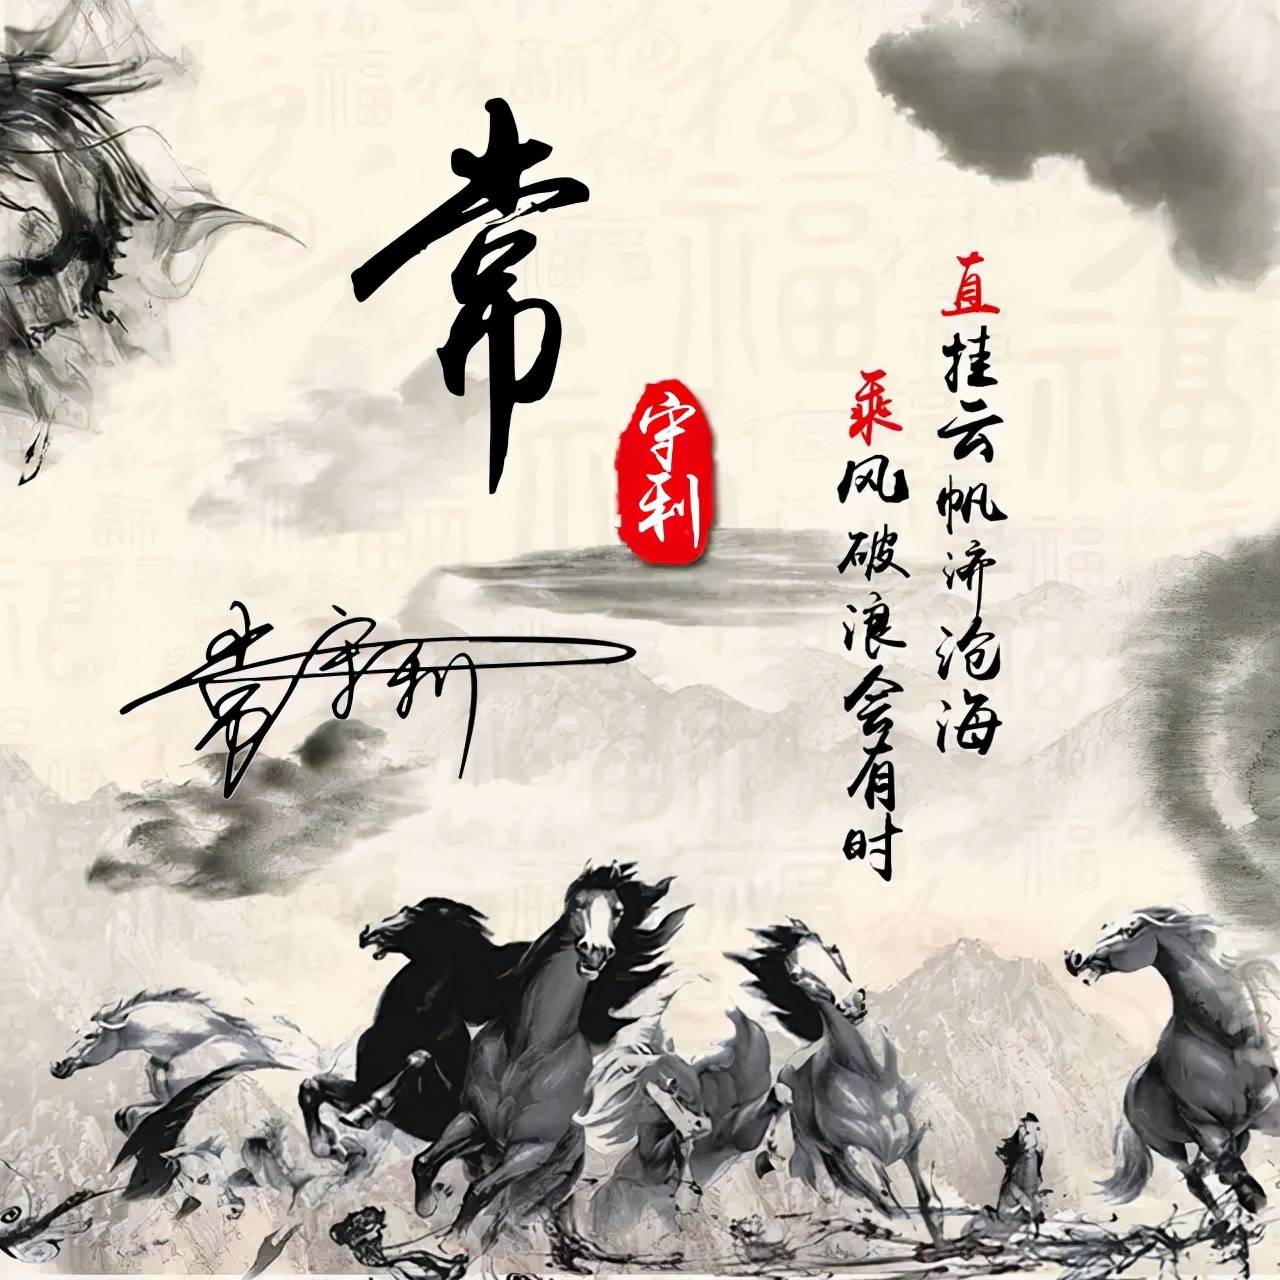 常
守利
直挂云帆济沧海
乘风破浪会有时
常守利
福